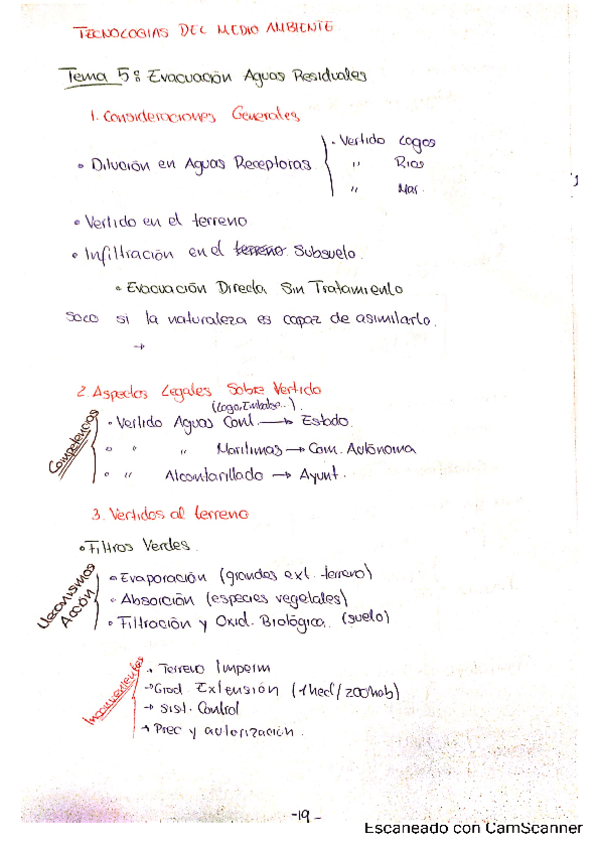 TECNOLOGIAS DEL MEDIO AMBIENTE
Tema 5: Evacuación Aguas Residuales
1. Consideraciones Generales
• Dilución en Aguas Receptoras
• Vertido Lagos
" Rios
" Mar.
• Vertido en el terreno
• Infiltración en el terreno Subsuelo.
• Evacuación Directa Sin Tratamiento
si la naturaleza es capaz de asimilarlo.
→
2. Aspectos Legales Sobre Vertido
(Lago, Embalse..)
Competencias
• Vertido Aguas Cont. → Estado.
• " " Marítimas → Com. Autónoma
• " Alcantarillado → Ayunt.
3. Vertidos al terreno
• Filtros Verdes.
Mecanismos Acción
• Evaporación (grandes ext. terreno)
• Absorción (especies vegetales)
• Filtración y Oxid. Biológica. (suelo)
Inconvenientes
→ Terreno Imperm
→ Grad Extensión (1hect/200hab)
→ Sist. Control
→ Prec y autorización.
-19-
Escaneado con CamScanner